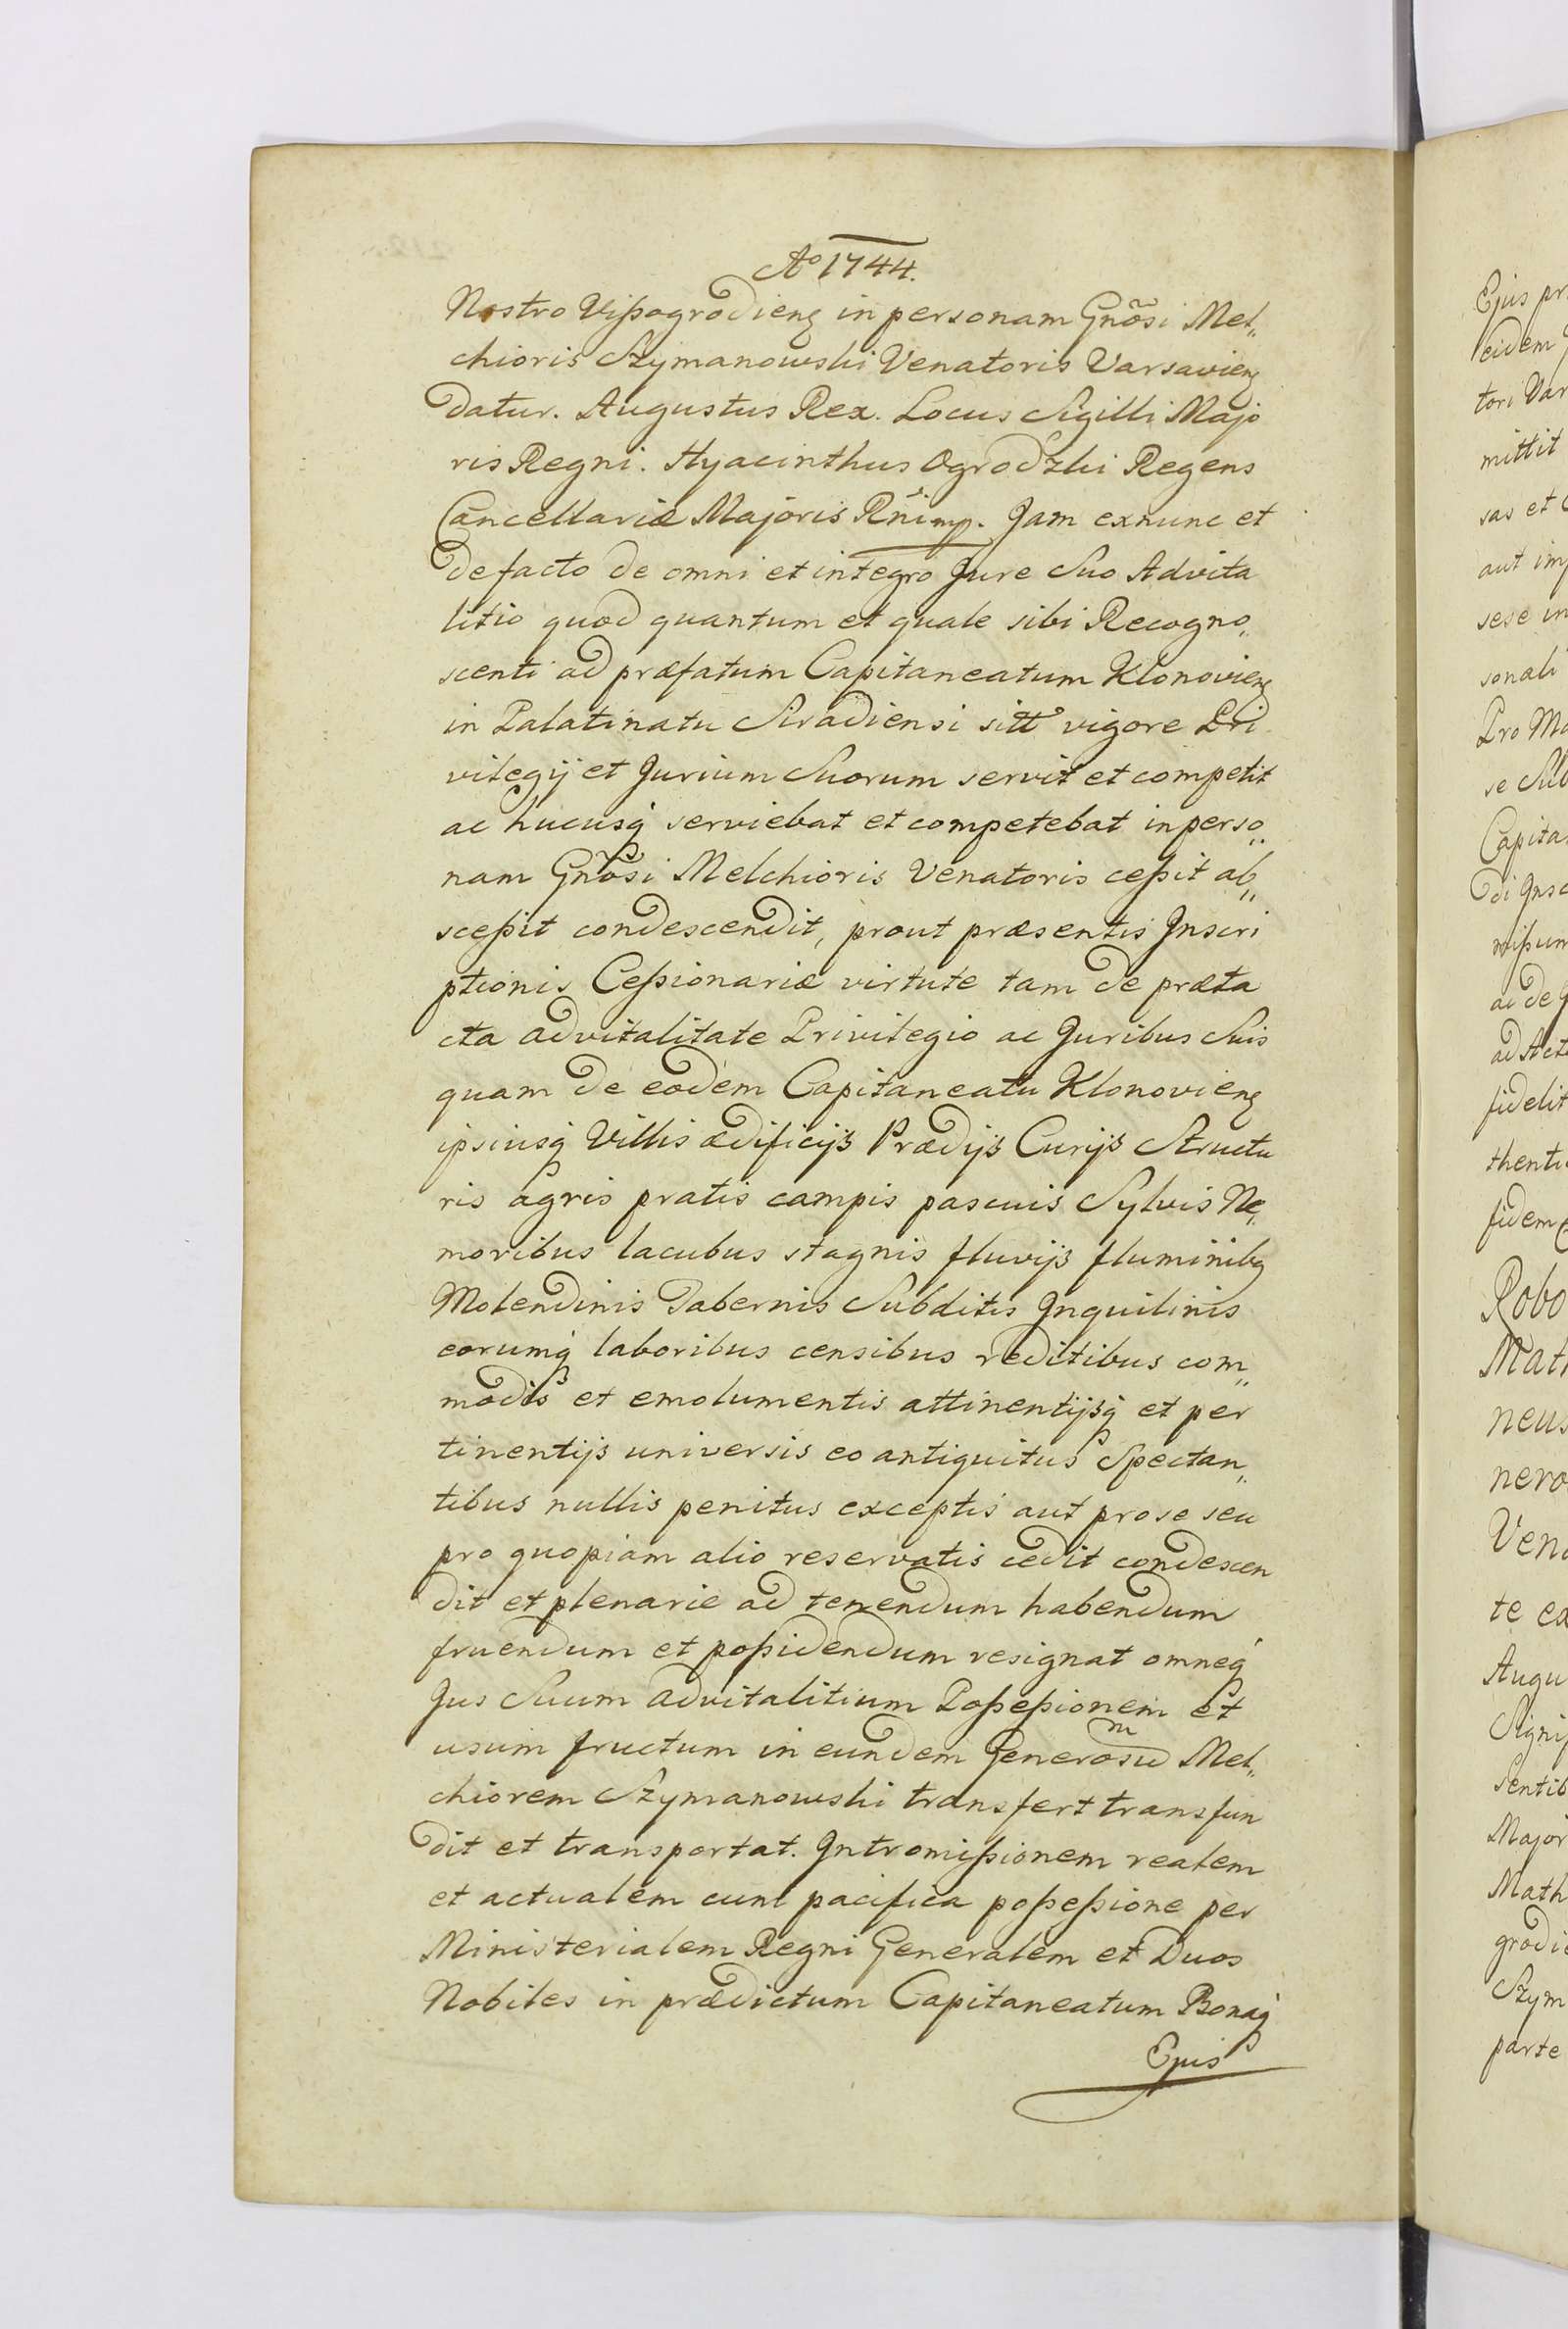 Ao 1744.
Nostro Vißogrodienȩ in personam Gnõsi Mel„
chioris Szymanowski Venatoris Varsavienȩ
datur. Augustus Rex. Locus Sigilli Majo
ris Regni. Hyacinthus Ogrodzki Regens
Cancellariæ Majoris Rñi mp. Jam exnunc et
de facto de omni et integro Jure Suo Advita
litio quod quantum et quale sibi Recogno„
scenti ad præfatum Capitaneatum Klonovienȩ
in Palatinatu Siradiensi sitt vigore Pri
vilegij et Jurium Suorum servit et competit
ac hucusq́ serviebat et competebat in perso„
nam Gnõsi Melchioris Venatoris ceßit ab„
sceßit condescendit, prout præsentis Jnscri
ptionis Ceßionariæ virtute tam de præta
cta advitalitate Privilegio ac Juribus Suis
quam de eodem Capitaneatu Klonovienȩ
ipsiusq́ Villis ædificijs Prædijs Curijs Structu
ris agris pratis campis pascuis Sylvis Ne„
moribus lacubus stagnis fluvijs fluminibȩ
Molendinis Tabernis Subditis Jnquilinis
eorumq́ laboribus censibus reditibus com„
modis et emolumentis attinentijsq́ et per
tinentijs universis eo antiquitus Spectan„
tibus nullis penitus exceptis aut pro se seu
pro quopiam alio reservatis cedit condescen
dit et plenarie ad tenendum habendum
fruendum et poßidendum resignat omneq́
Jus Suum advitalitium Poßeßionem et
usum fructum in eundem Generosum Mel„
chiorem Szymanowski transfert transfun
dit et transportat. Jntromißionem realem
et actualem cum pacifica poßeßione per
Ministerialem Regni Generalem et Duos
Nobiles in prædictum Capitaneatum Bonaq́
Ejus
Ejus
eidem
tori Var
mittit
sas et
aut im
sese in
sonali
Pro
se
Capita
di Jnsc
mißum
ac de
ad Act
fidelit
thenti
fidem
Robo
Math
neus
nero
Vena
te ex
Augu
Signi
Sentib
Major
Math
grodi
Szym
parte